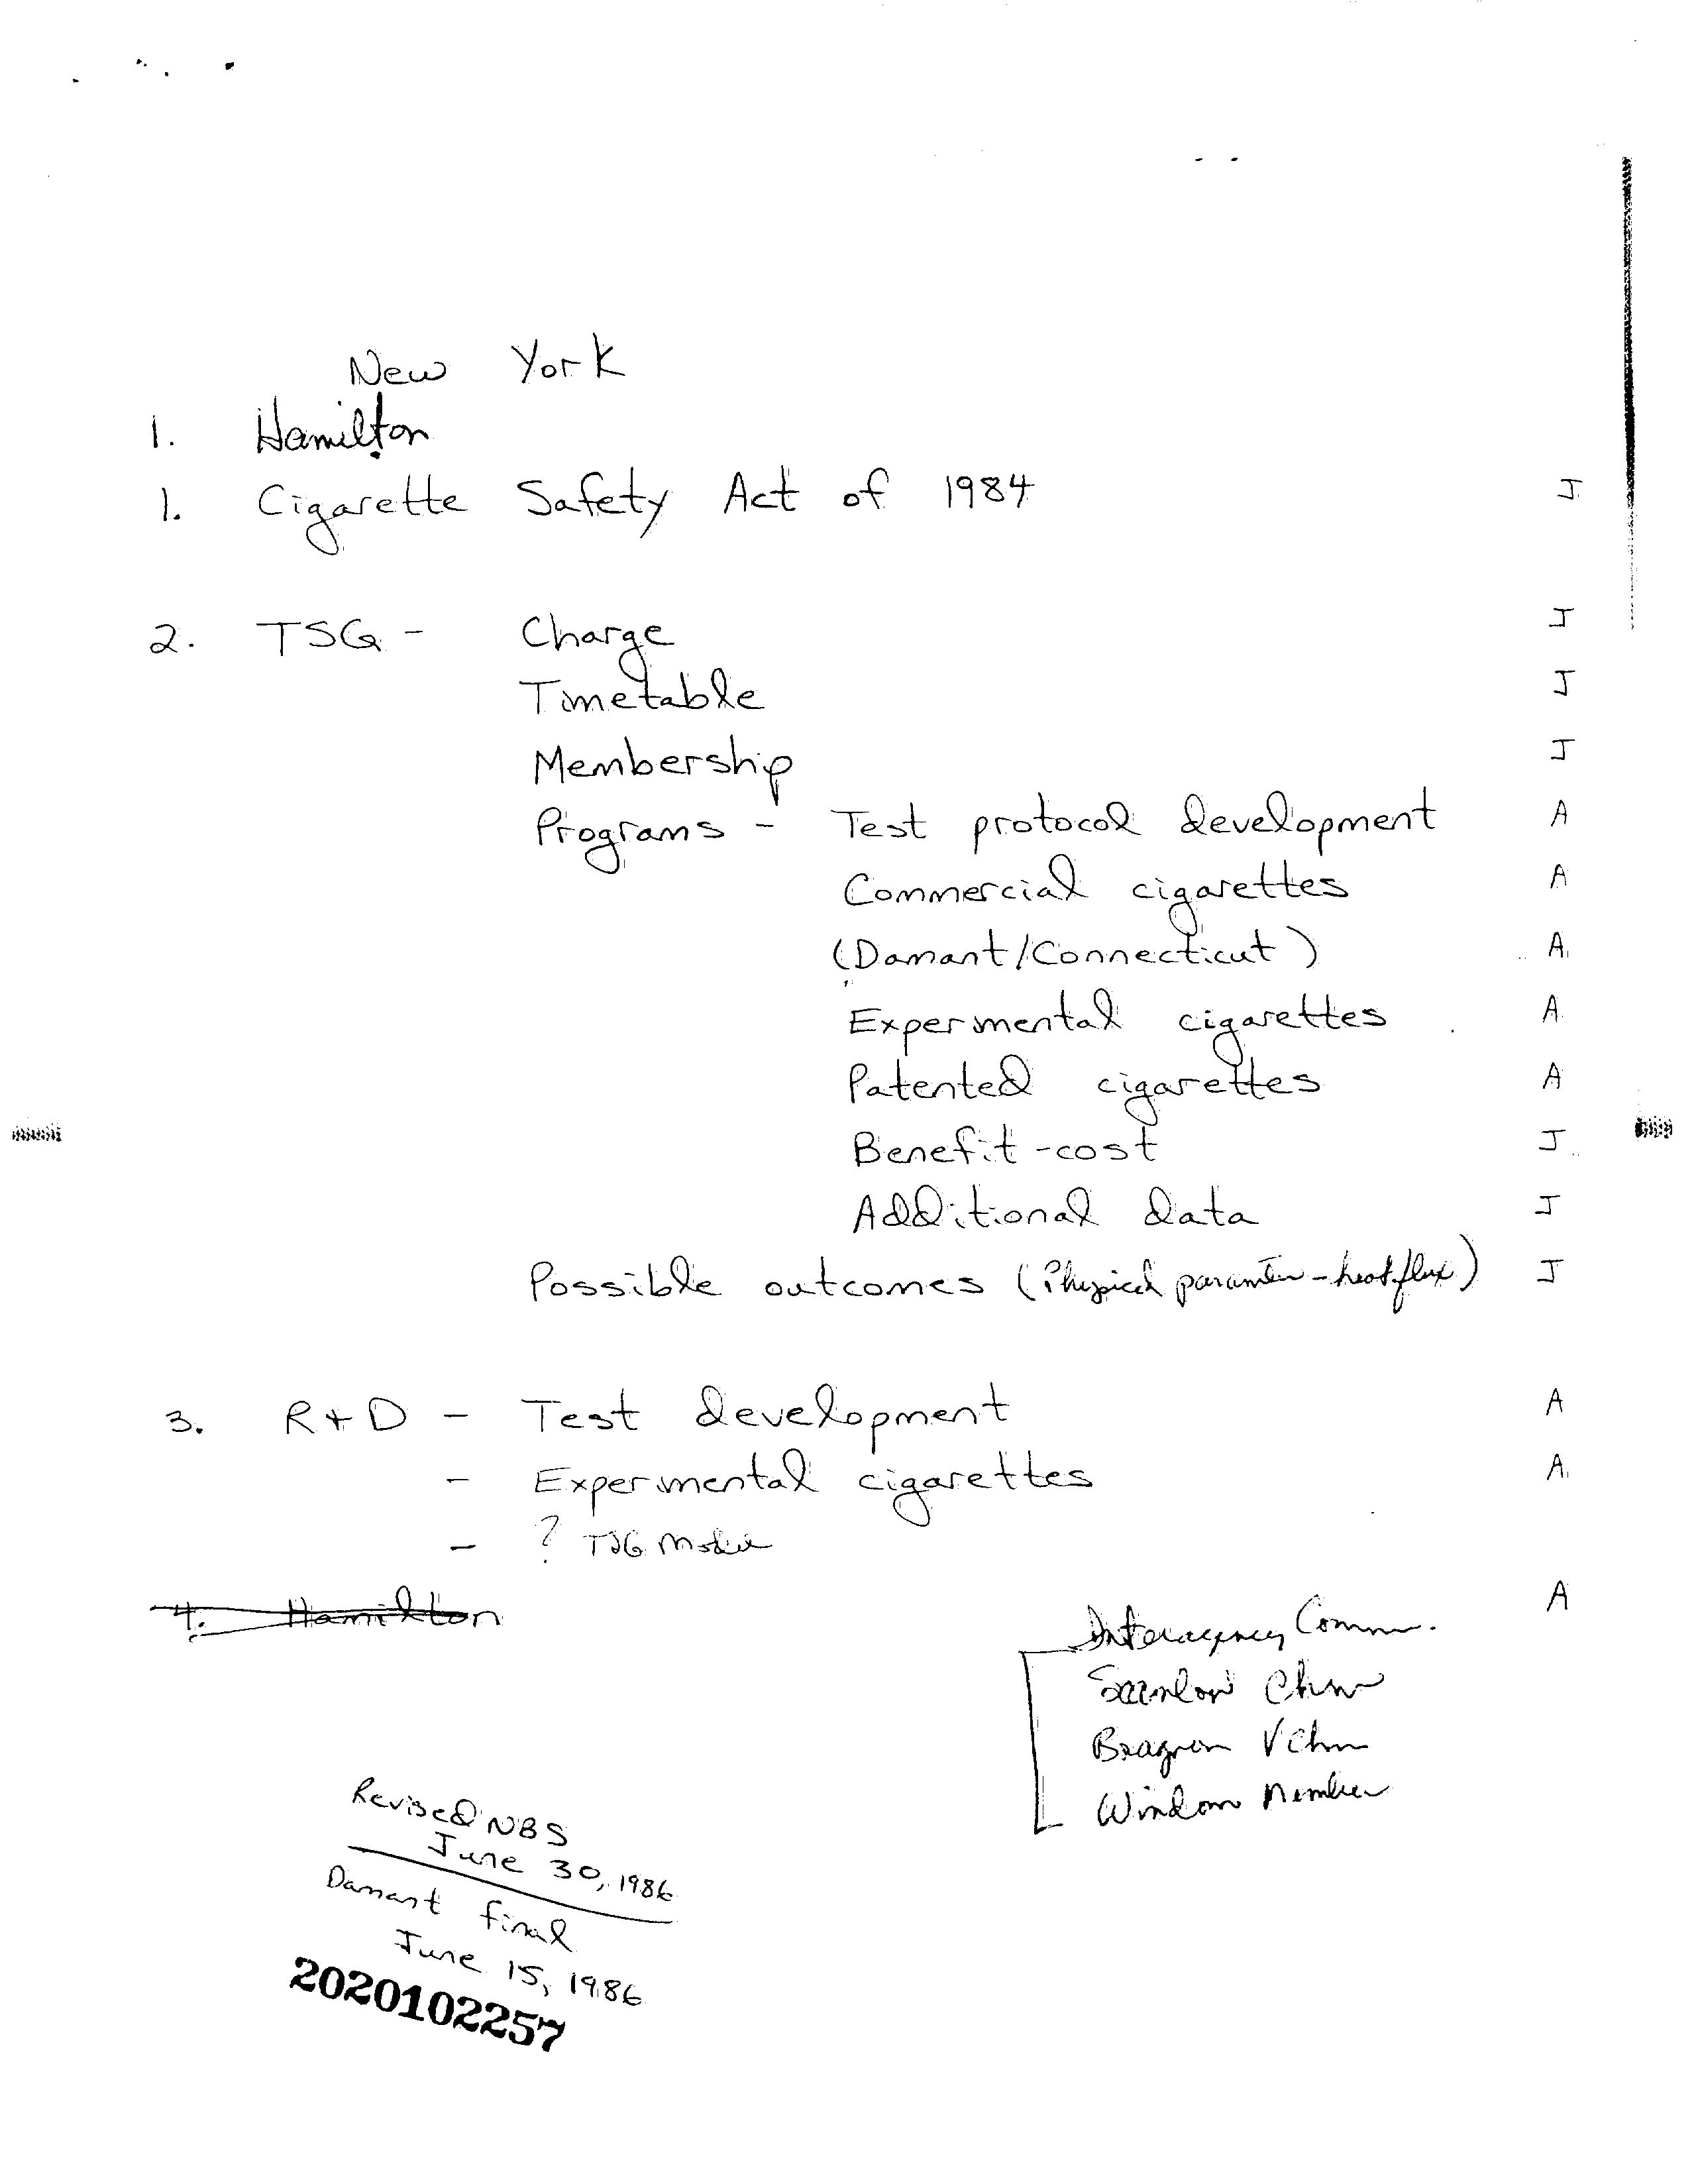 New York
1. Hamilton
1. Cigarette Safety Act of 1984 J
2. TSG - Charge J
Timetable J
Membership J
Programs - Test protocol development A
Commercial cigarettes A
(Damant/Connecticut) A
Experimental cigarettes A
Patented cigarettes A
Benefit-cost J
Additional data J
Possible outcomes (Physical parameter - heat flux) J
3. R+D - Test development A
- Experimental cigarettes A
- ? TSG
4. Hamilton A
Interagency Comm.
Scanlon Chm
VChm
Windom Member
Revised NBS
June 30, 1986
Damant final
June 15, 1986
2020102257